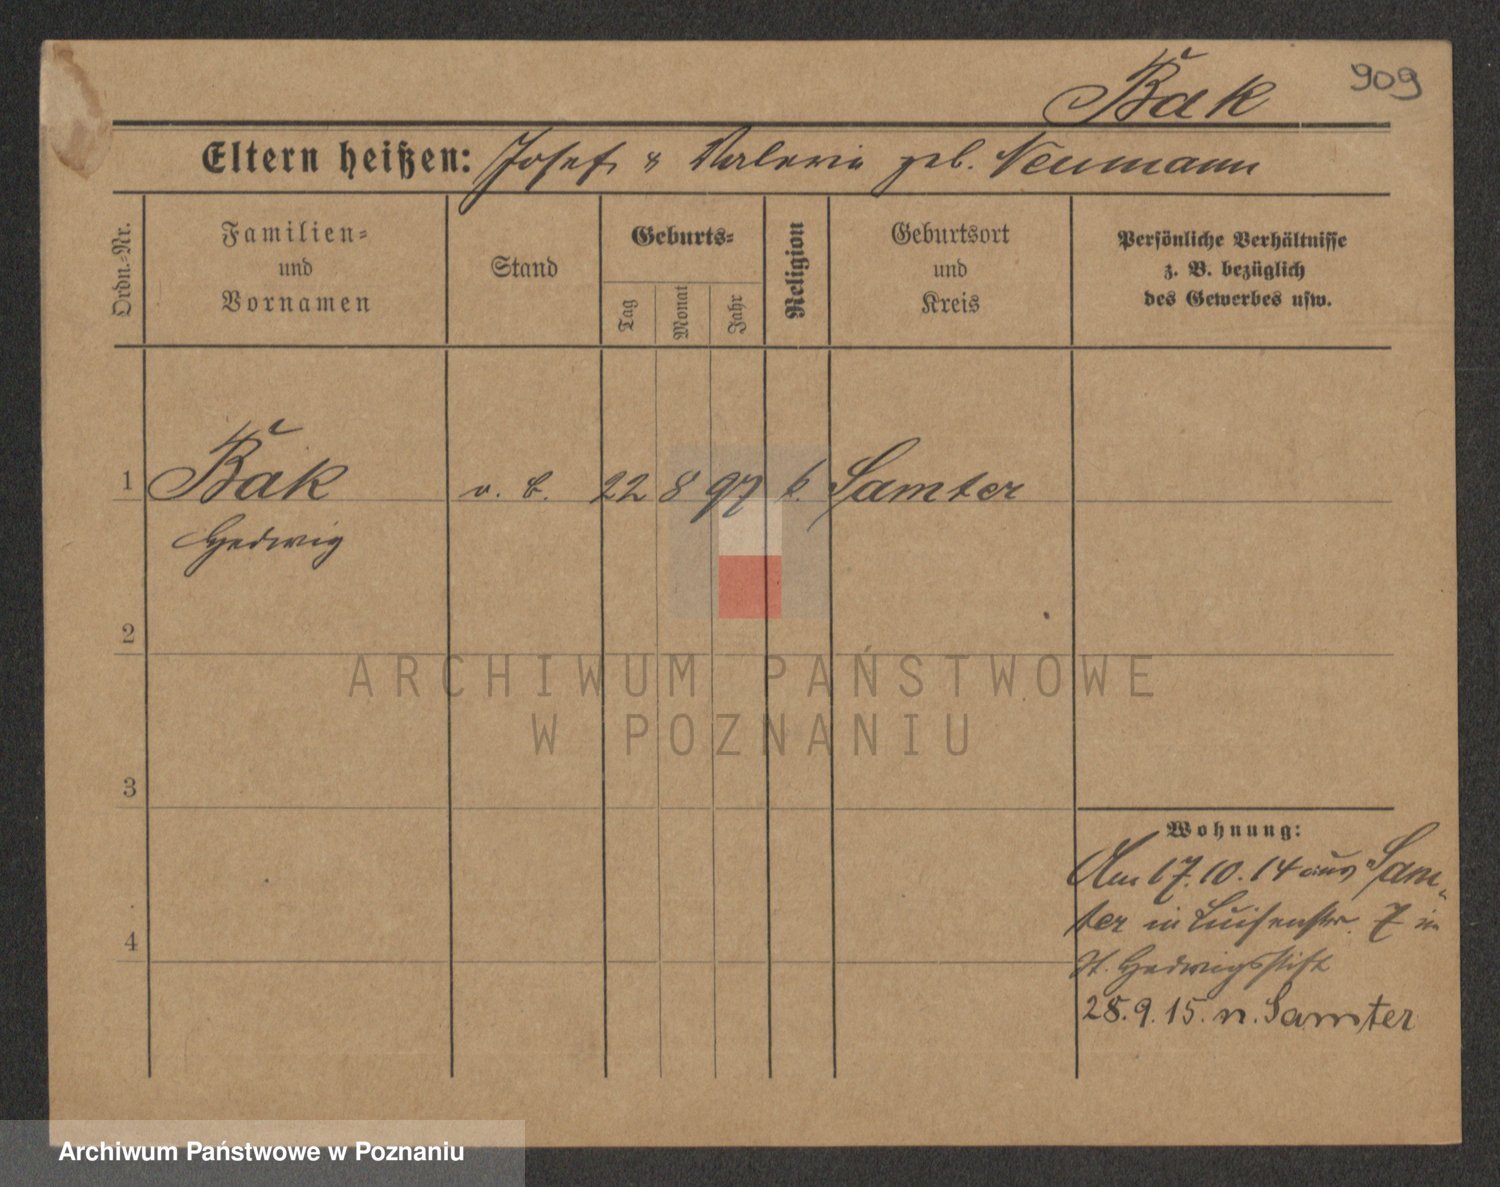 Bak
909
Eltern heißen: Josef & Valeria geb. Neumann
Ordn.-Nr.
Familien-
und
Vornamen
Stand
Geburts-
Tag
Monat
Jahr
Religion
Geburtsort
und
Kreis
Persönliche Verhältnisse
z. B. bezüglich
des Gewerbes usw.
1 Bak o. B. 22 8 97 k. Samter
Hedwig
2
3
4
Wohnung:
Am 17.10.14 aus Sam-
ter in Luisenstr. 7 im
St. Hedwigsstift
28.9.15. n. Samter
ARCHIWUM PAŃSTWOWE
W POZNANIU
Archiwum Państwowe w Poznaniu